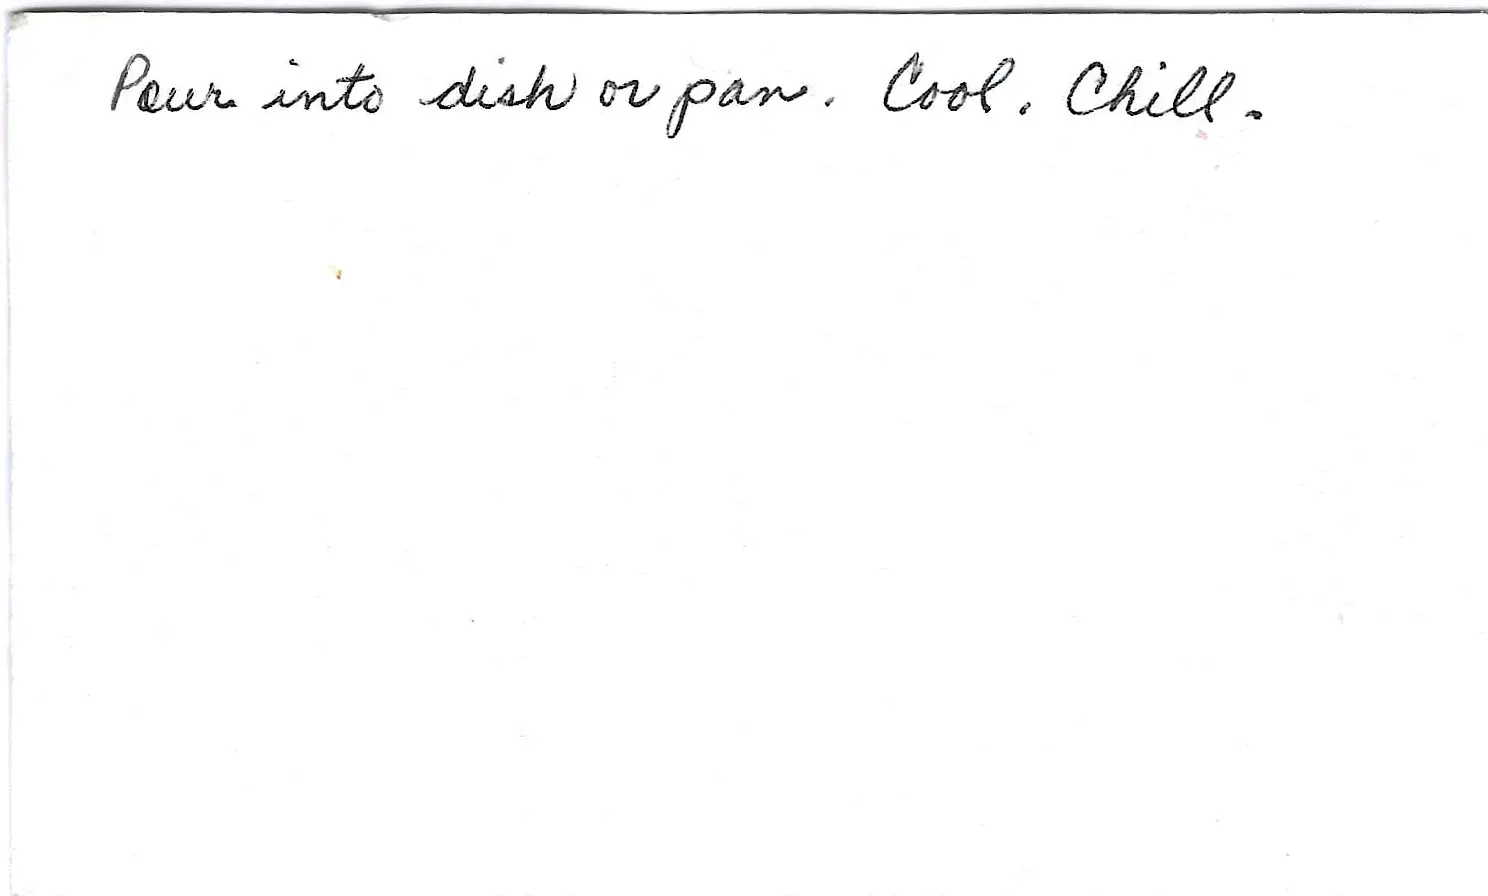 Pour into dish or pan. Cool. Chill.